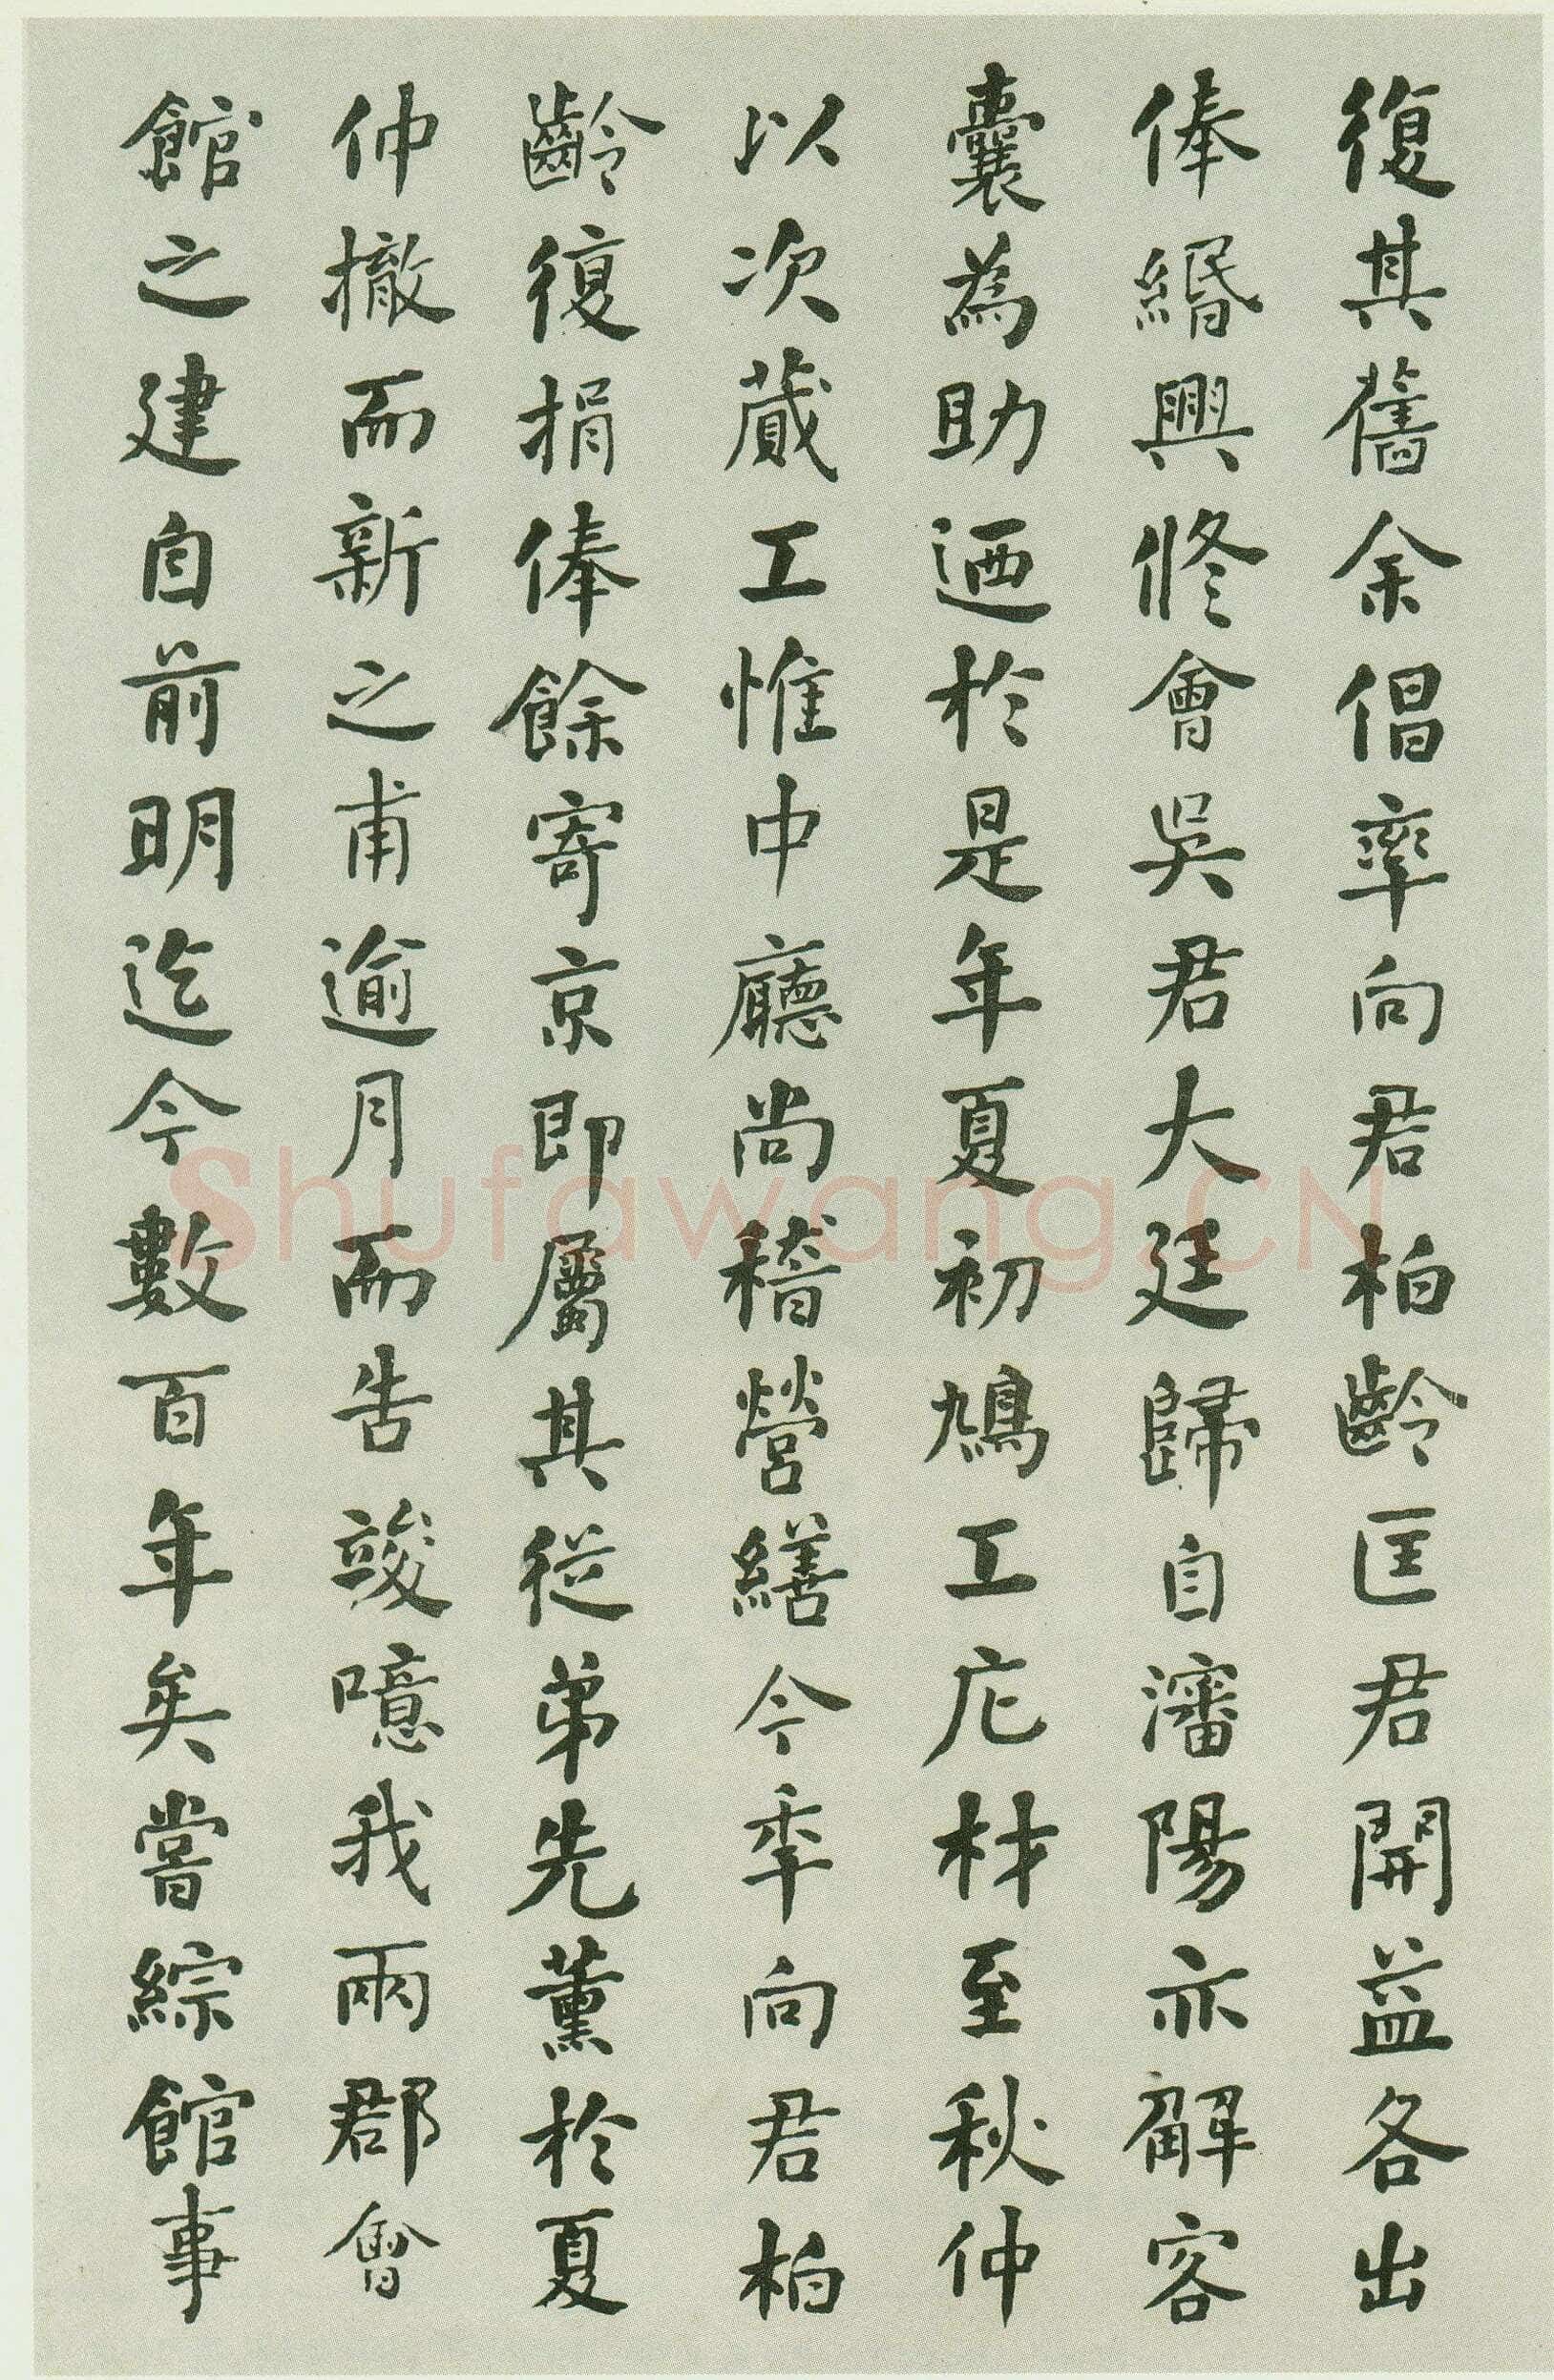 復其舊余倡率向君柏齡匡君開益各出
俸緡興修會吳君大廷歸自瀋陽亦解客
囊為助迺於是年夏初鳩工庀材至秋仲
以次蕆工惟中廳尚稽營繕今季向君柏
齡復捐俸餘寄京即屬其從弟先薰於夏
仲撤而新之甫逾月而告竣噫我兩郡會
館之建自前明迄今數百年矣嘗綜館事
Shufawang.CN